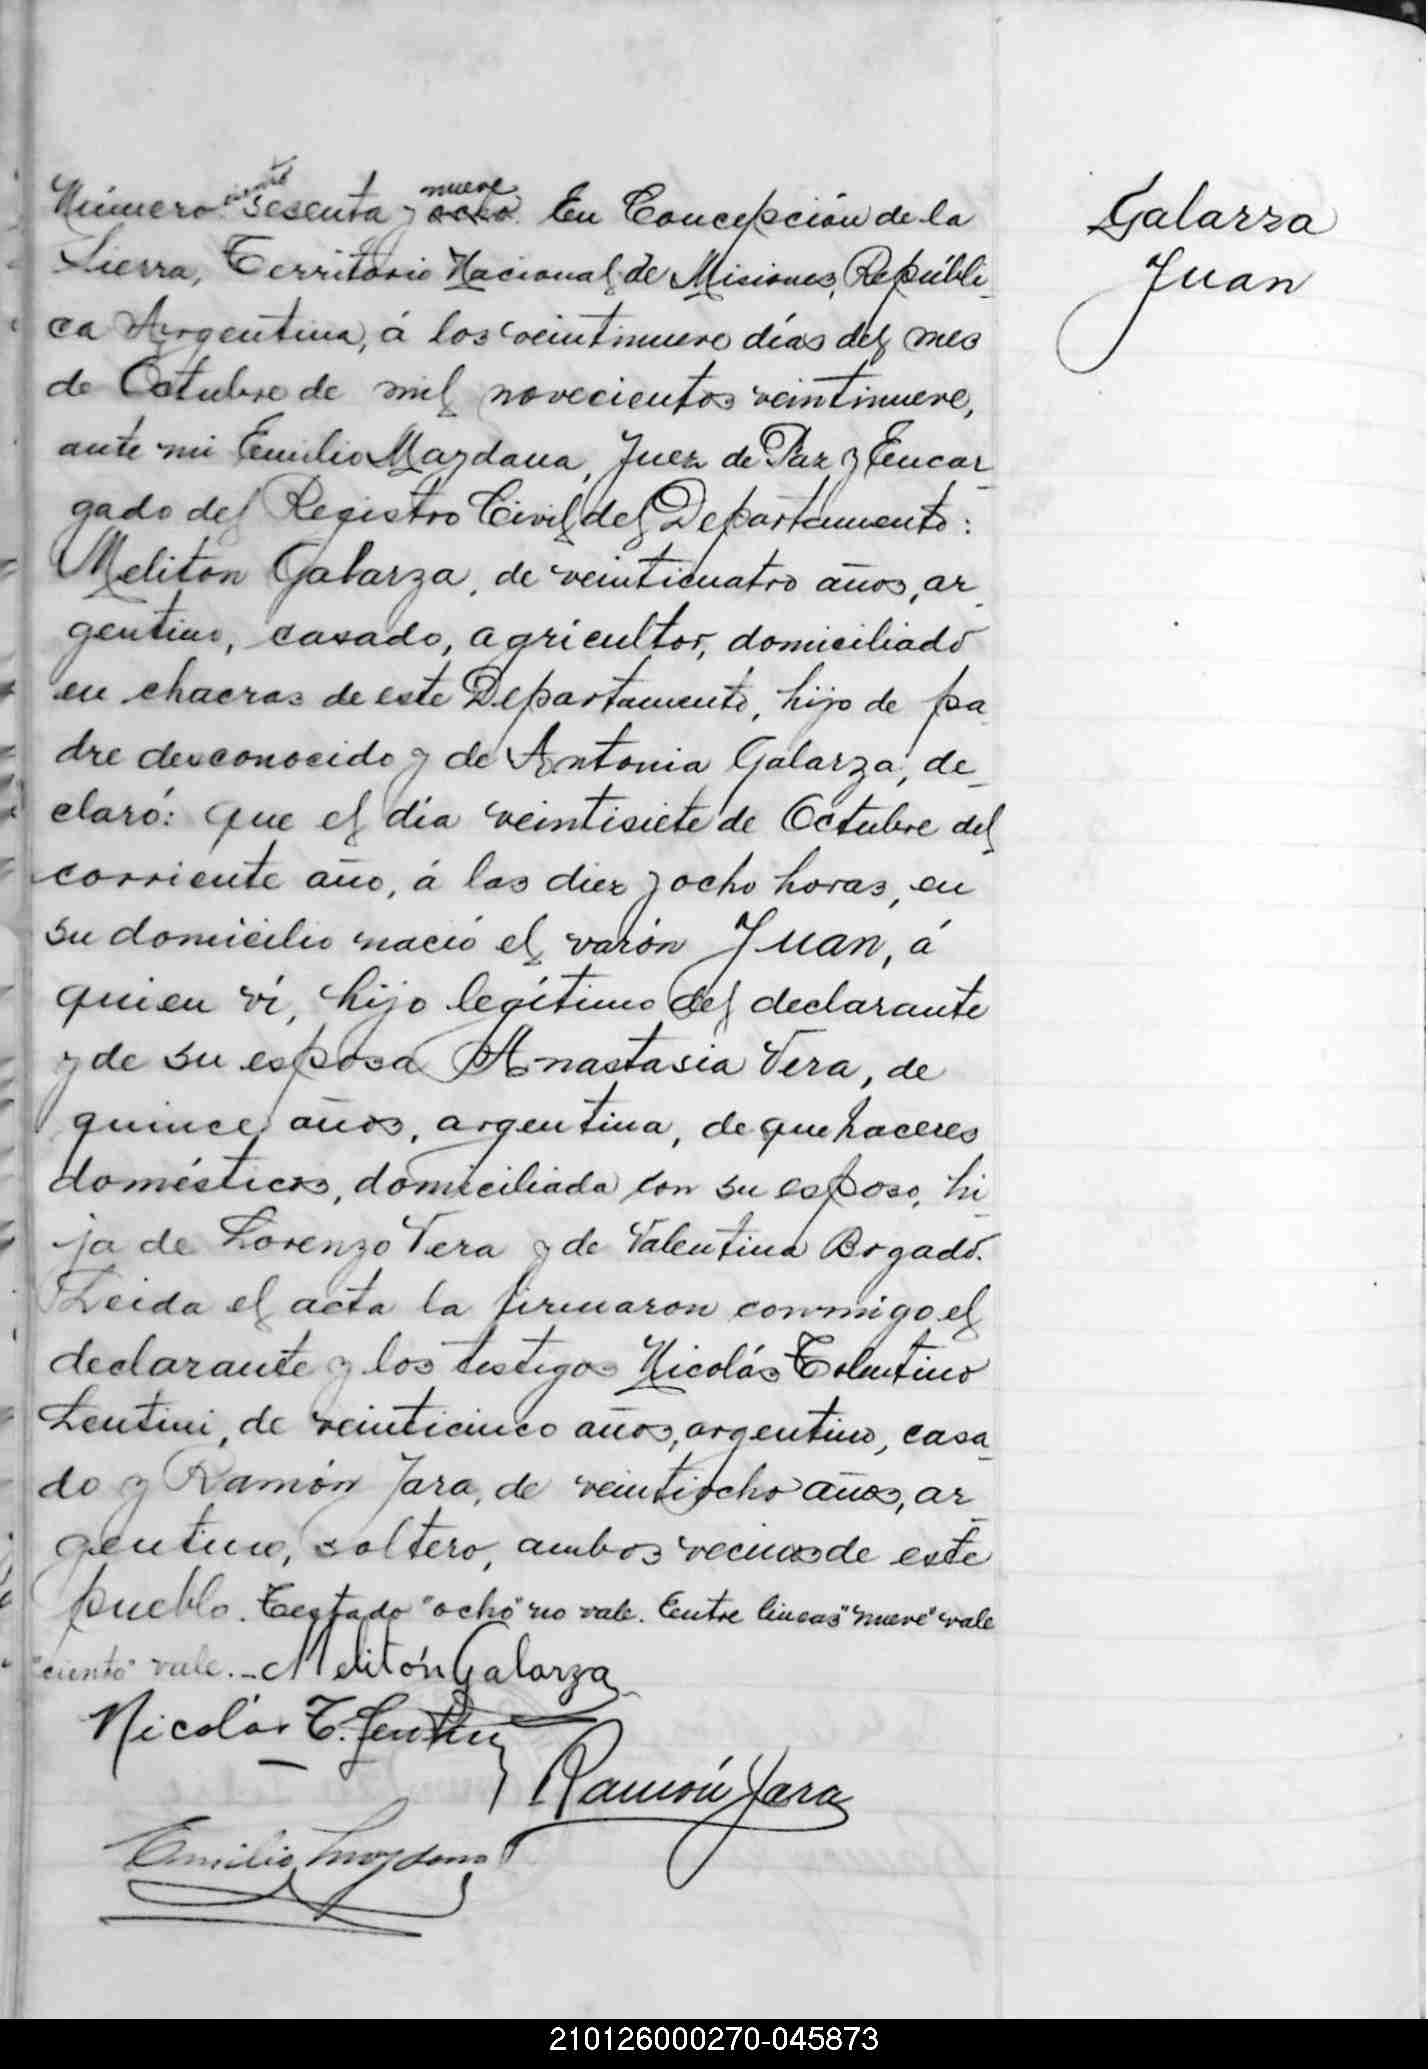 Número ciento sesenta y ocho nueve En Concepción de la
Sierra, Territorio Nacional de Misiones, Repúbli-
ca Argentina, á los veintinueve días del mes
de Octubre de mil novecientos veintinueve,
ante mi Emilio Maydana, Juez de Paz y Encar-
gado del Registro Civil del Departamento:
Meliton Galarza, de veinticuatro años, ar-
gentino, casado, agricultor, domiciliado
en chacras de este Departamento, hijo de pa-
dre desconocido y de Antonia Galarza, de-
claró: que el día veintisiete de Octubre del
corriente año, á las diez y ocho horas, en
su domicilio nació el varón Juan, á
quien ví, hijo legítimo del declarante
y de su esposa Anastasia Vera, de
quince años, argentina, de quehaceres
domésticos, domiciliada con su esposo, hi-
ja de Lorenzo Vera y de Valentina Bogado.
Leida el acta la firmaron conmigo el
declarante y los testigos Nicolás Tolentino
Lentini, de veinticinco años, argentino, casa-
do y Ramón Jara, de veintiocho años, ar-
gentino, soltero, ambos vecinos de este
pueblo. Testado "ocho" no vale. Entre lineas "nueve" vale
"ciento" vale.- Melitón Galarza
Nicolás T. Lentini
Ramón Jara
Emilio Maydana
Galarza
Juan
210126000270-045873